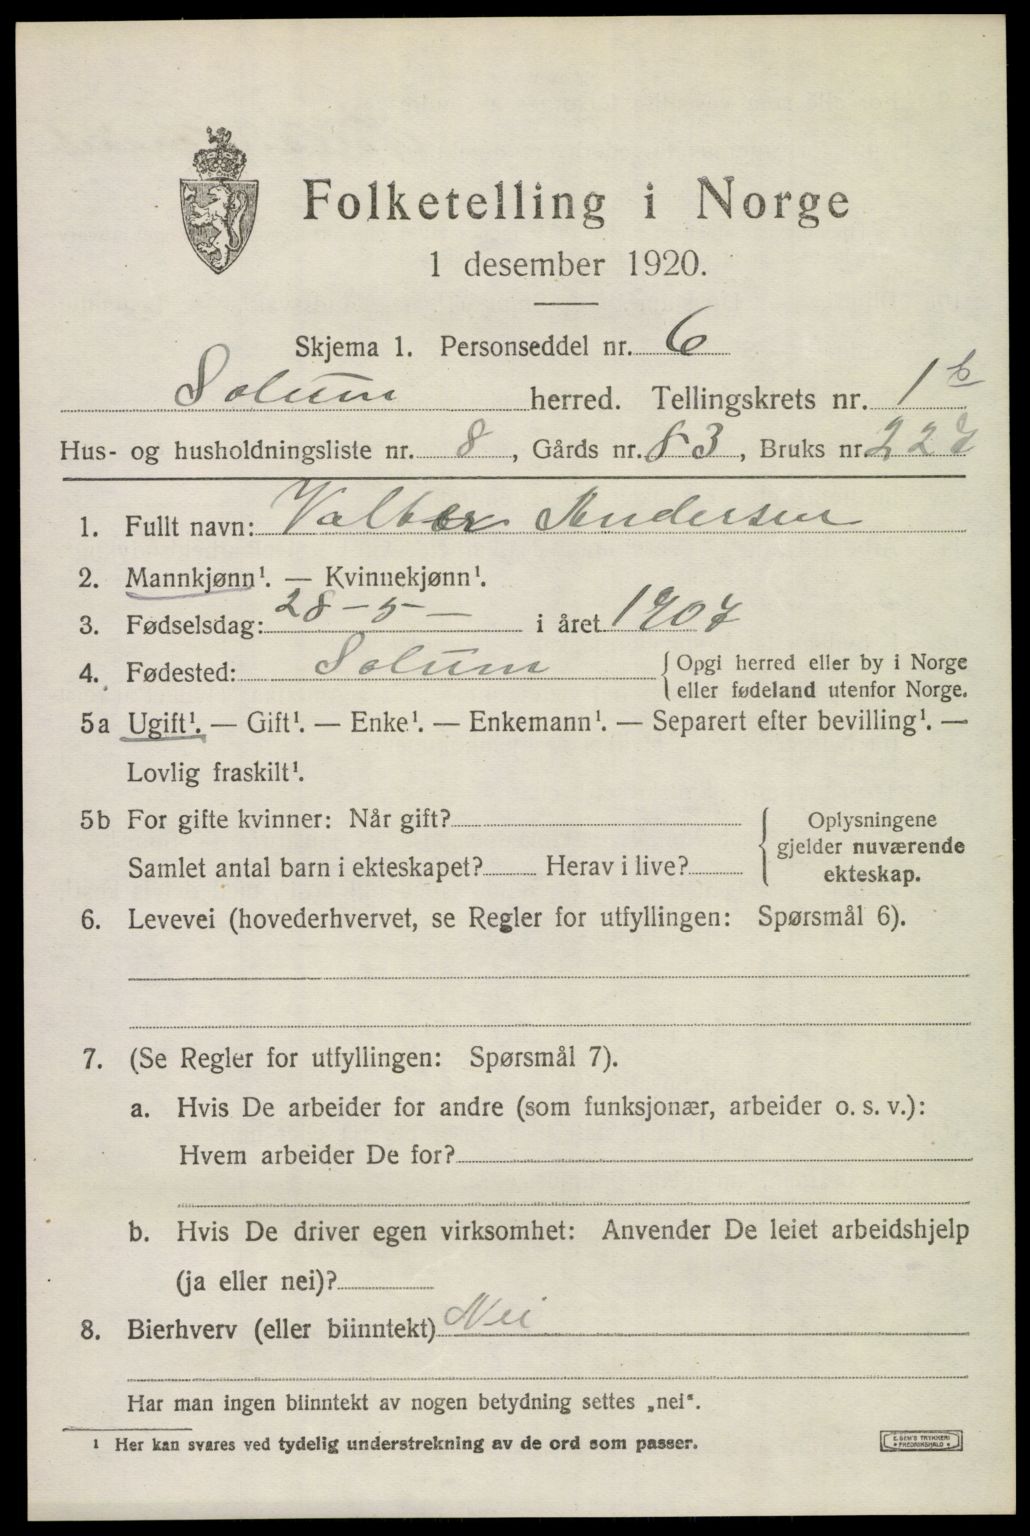 Folketelling i Norge
1 desember 1920.
Skjema 1. Personseddel nr. 6
Solum herred. Tellingskrets nr. 1 b
Hus- og husholdningsliste nr. 8, Gårds nr. 83, Bruks nr 227
1. Fullt navn: Andersen
2. Mannkjønn¹. — Kvinnekjønn¹.
3. Fødselsdag: 28-5- i året 1907
4. Fødested: Solum { Opgi herred eller by i Norge
eller fødeland utenfor Norge.
5a Ugift¹. — Gift¹. — Enke¹. — Enkemann¹. — Separert efter bevilling¹. —
Lovlig fraskilt¹.
5b For gifte kvinner: Når gift?
Samlet antal barn i ekteskapet? Herav i live?
{ Oplysningene
gjelder nuværende
ekteskap.
6. Levevei (hovederhvervet, se Regler for utfyllingen: Spørsmål 6).
7. (Se Regler for utfyllingen: Spørsmål 7).
a. Hvis De arbeider for andre (som funksjonær, arbeider o. s. v.):
Hvem arbeider De for?
b. Hvis De driver egen virksomhet: Anvender De leiet arbeidshjelp
(ja eller nei)?
8. Bierhverv (eller biinntekt) Nei
Har man ingen biinntekt av nogen betydning settes „nei“.
¹ Her kan svares ved tydelig understrekning av de ord som passer.
E. SEM'S TRYKKERI
* FREDRIKSHALD *